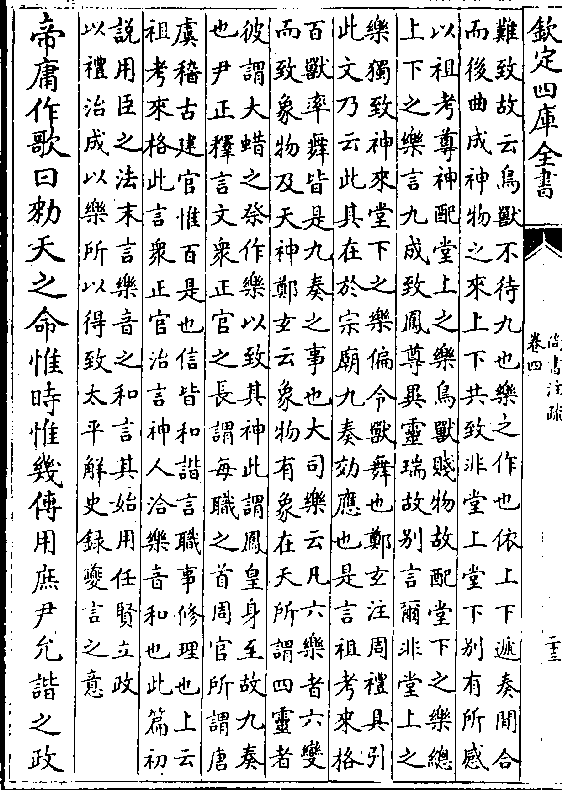 欽定四庫全書
尚書注疏
卷四
二十三
難致故云鳥獸不待九也樂之作也依上下遞奏間合
而後曲成神物之來上下共致非堂上堂下別有所感
以祖考尊神配堂上之樂鳥獸賤物故配堂下之樂總
上下之樂言九成致鳳尊異靈瑞故别言爾非堂上之
樂獨致神來堂下之樂偏令獸舞也鄭玄注周禮具引
此文乃云此其在於宗廟九奏効應也是言祖考來格
百獸率舞皆是九奏之事也大司樂云凡六樂者六變
而致象物及天神鄭玄云象物有象在天所謂四靈者
彼謂大蜡之祭作樂以致其神此謂鳳皇身至故九奏
也尹正釋言文衆正官之長謂每職之首周官所謂唐
虞稽古建官惟百是也信皆和諧言職事修理也上云
祖考來格此言衆正官治言神人洽樂音和也此篇初
說用臣之法末言樂音之和言其始用任賢立政
以禮治成以樂所以得致太平解史録夔言之意
帝庸作歌曰勑天之命惟時惟幾傳用庶尹允諧之政